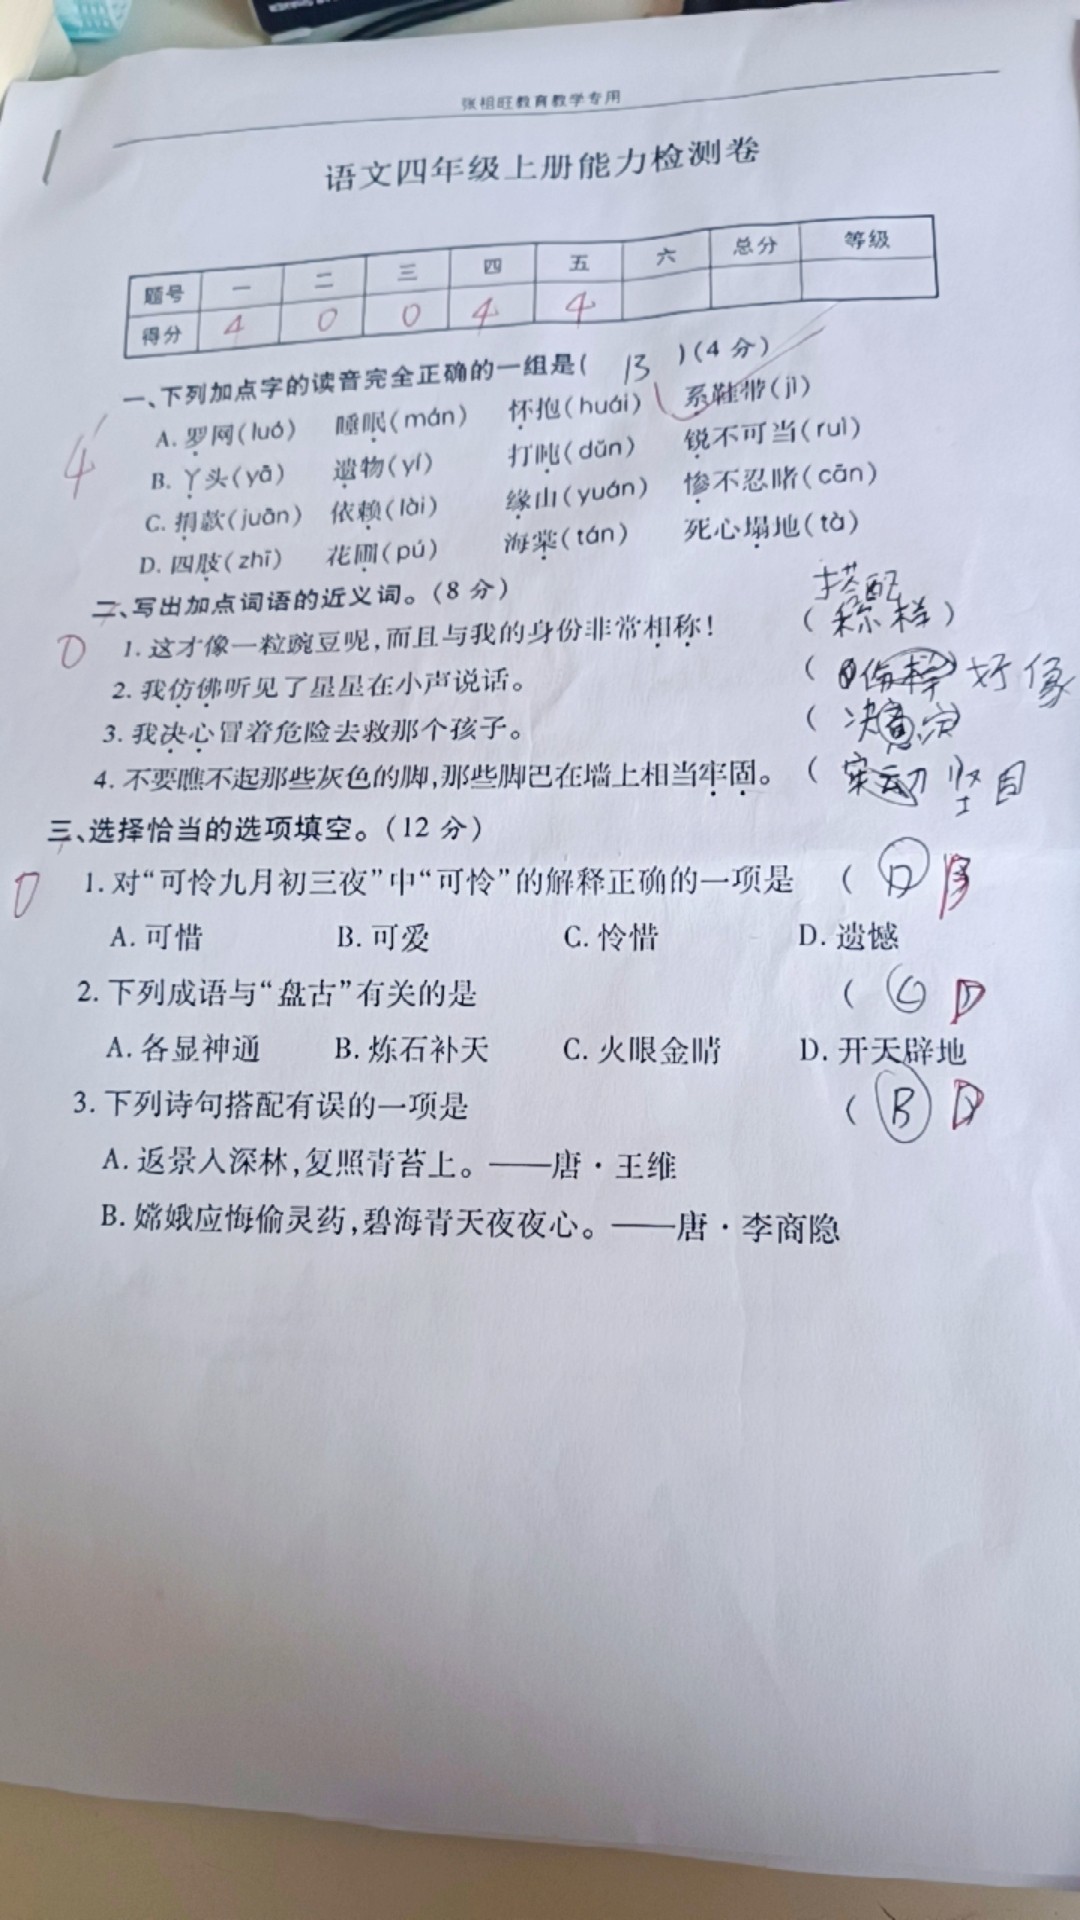 张祖旺教育教学专用
语文四年级上册能力检测卷
题号 一 二 三 四 五 六 总分 等级
得分 4 0 0 4 4
一、下列加点字的读音完全正确的一组是( B )(4 分)
4
A. 罗网(luó) 睡眠(mán) 怀抱(huái) 系鞋带(jì)
B. 丫头(yā) 遗物(yí) 打盹(dǔn) 锐不可当(ruì)
C. 捐款(juān) 依赖(lài) 缘山(yuán) 惨不忍睹(cān)
D. 四肢(zhī) 花圃(pú) 海棠(tán) 死心塌地(tà)
二、写出加点词语的近义词。(8 分)
搭配
0
1. 这才像一粒豌豆呢,而且与我的身份非常相称! ( 称样 )
2. 我仿佛听见了星星在小声说话。 ( 好像
3. 我决心冒着危险去救那个孩子。 ( 决 定
4. 不要瞧不起那些灰色的脚,那些脚巴在墙上相当牢固。 ( 坚固
三、选择恰当的选项填空。(12 分)
0
1. 对“可怜九月初三夜”中“可怜”的解释正确的一项是 ( D B
A. 可惜 B. 可爱 C. 怜惜 D. 遗憾
2. 下列成语与“盘古”有关的是 ( C D
A. 各显神通 B. 炼石补天 C. 火眼金睛 D. 开天辟地
3. 下列诗句搭配有误的一项是 ( B D
A. 返景入深林,复照青苔上。——唐·王维
B. 嫦娥应悔偷灵药,碧海青天夜夜心。——唐·李商隐